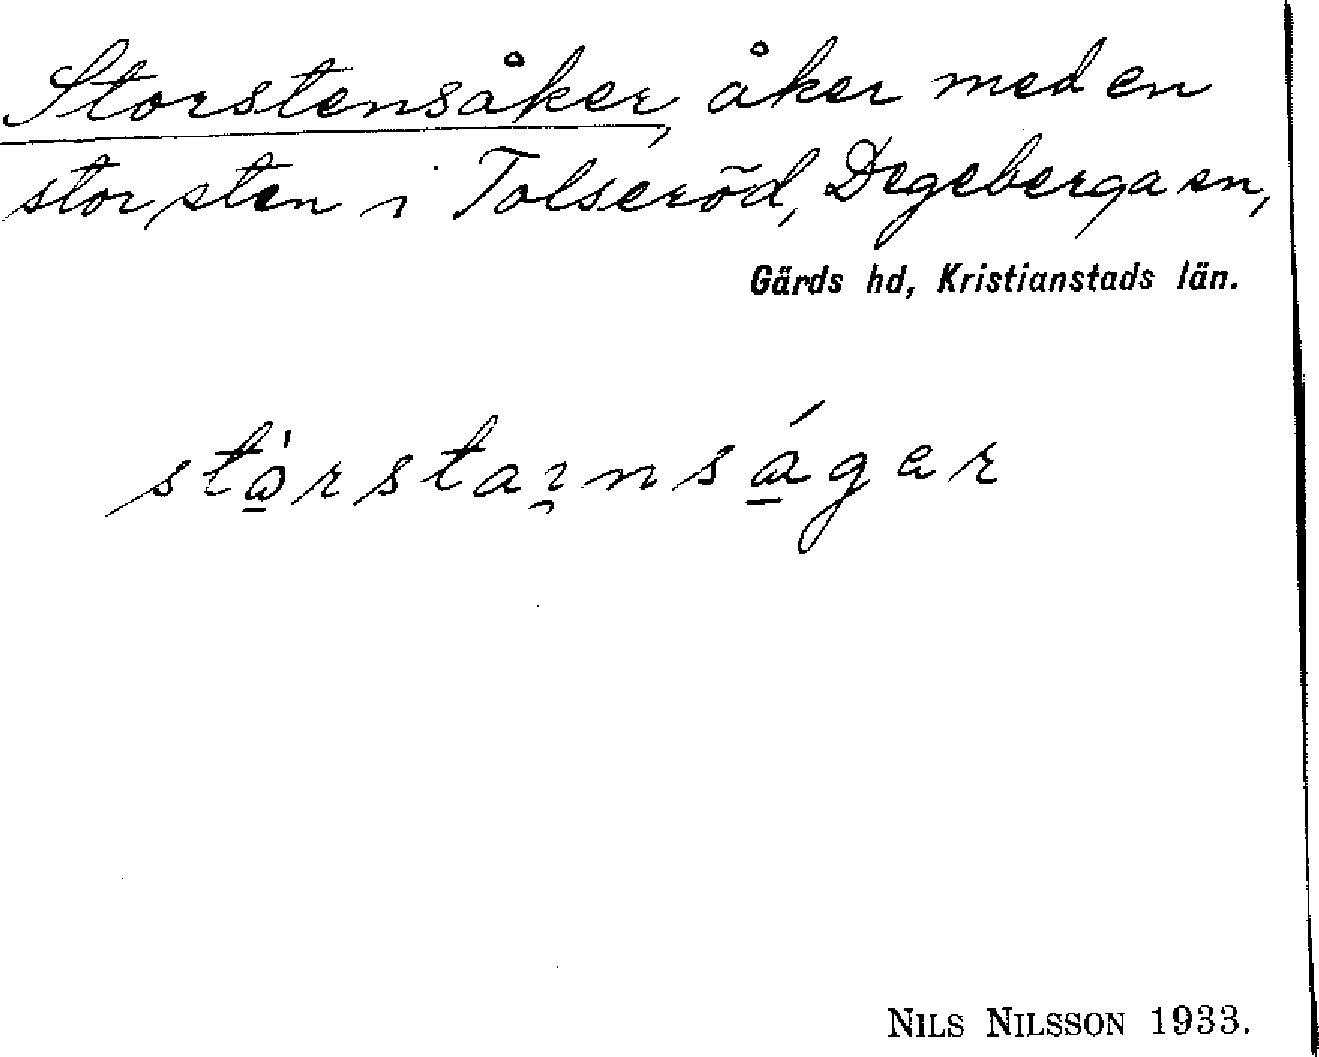 Storstensåker, åker med en
stor sten i Tolseröd, Degeberga sn,
Gärds hd, Kristianstads län.
NILS NILSSON 1933.